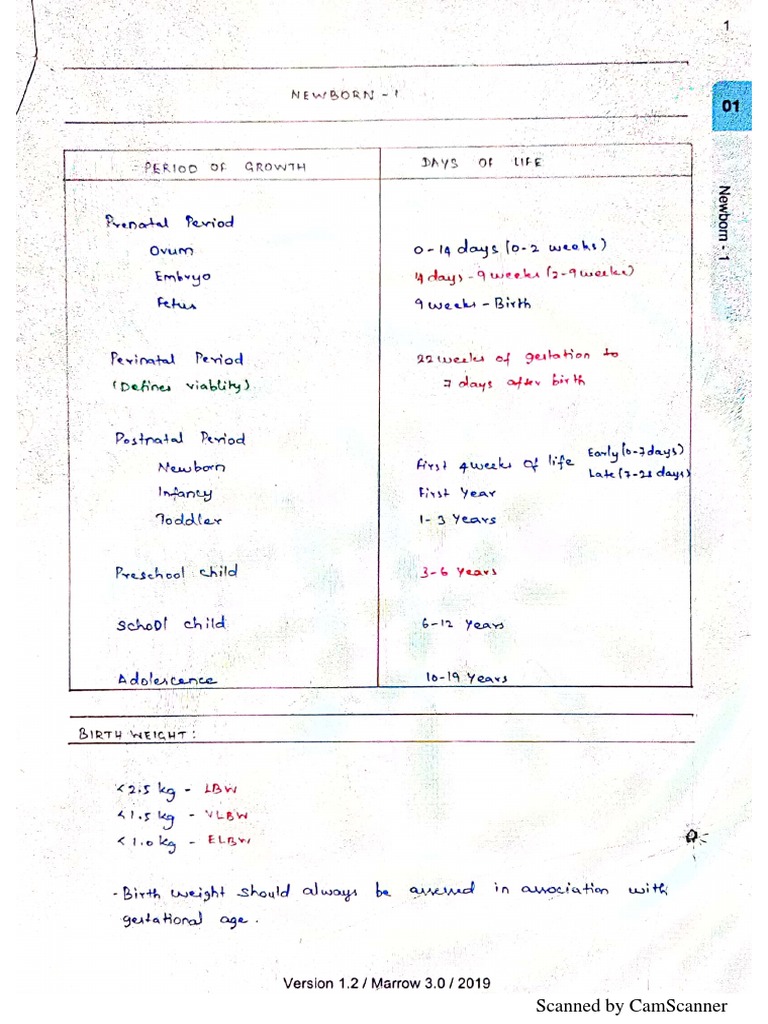 1
NEWBORN - 1
01
Newborn - 1
PERIOD OF GROWTH DAYS OF LIFE
Prenatal Period
Ovum 0-14 days (0-2 weeks)
Embryo 14 days - 9 weeks (2-9 weeks)
Fetus 9 weeks - Birth
Perinatal Period 22 weeks of gestation to
(Defines viablity) 7 days after birth
Postnatal Period
Newborn First 4 weeks of life Early (0-7 days)
Late (7-28 days)
Infancy First Year
Toddler 1-3 Years
Preschool child 3-6 Years
School child 6-12 Years
Adolescence 10-19 Years
BIRTH WEIGHT :
<2.5 kg - LBW
<1.5 kg - VLBW
<1.0 kg - ELBW
- Birth weight should always be assessed in association with
gestational age.
Version 1.2 / Marrow 3.0 / 2019
Scanned by CamScanner